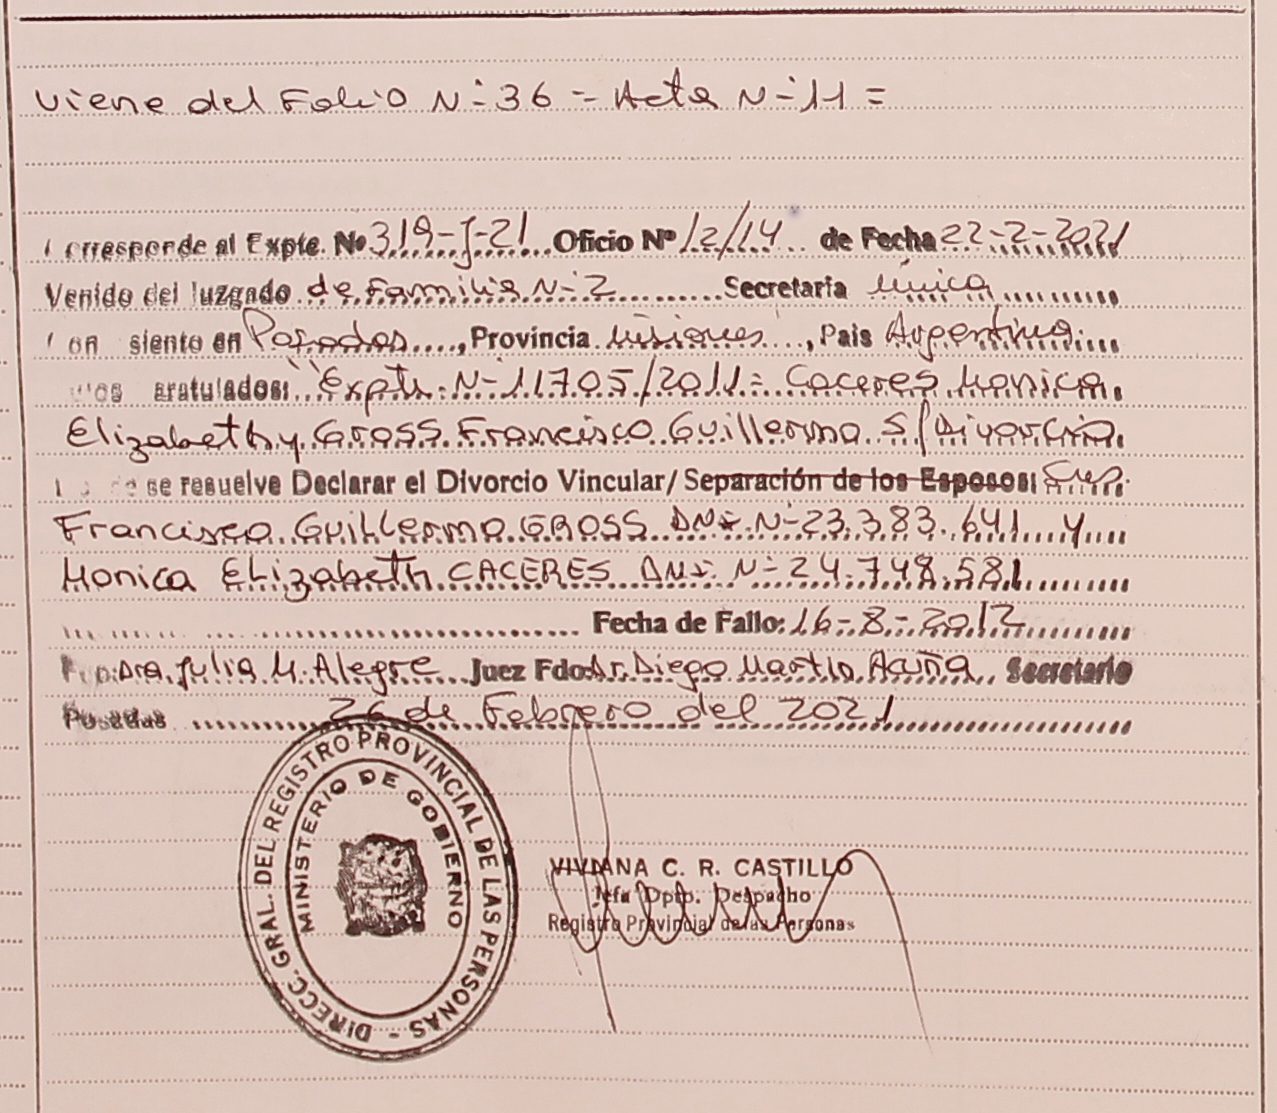 Viene del Folio N-36 - Acta N-11 =
Corresponde al Expte. Nº 319-J-21 Oficio Nº 12/14 de Fecha 22-2-2021
Venido del Juzgado de Familia N-2 Secretaria única
Con siento en Posadas, Provincia Misiones, Pais Argentina
autos caratulados: "Expte. N-11705/2011- Caceres Monica
Elizabeth y GROSS Francisco Guillermo S/Divorcio
se resuelve Declarar el Divorcio Vincular/ Separación de los Esposos:
Francisco Guillermo GROSS DNI N-23.383.641 y
Monica Elizabeth CACERES DNI N-24.748.581
Fecha de Fallo: 16-8-2012
Fdo: Dra. Julia M. Alegre Juez Fdo: Dr. Diego Martin Acuña Secretario
Posadas 26 de Febrero del 2021
DIRECC. GRAL. DEL REGISTRO PROVINCIAL DE LAS PERSONAS -
MINISTERIO DE GOBIERNO
VIVIANA C. R. CASTILLO
Jefa Dpto. Despacho
Registro Provincial de las Personas